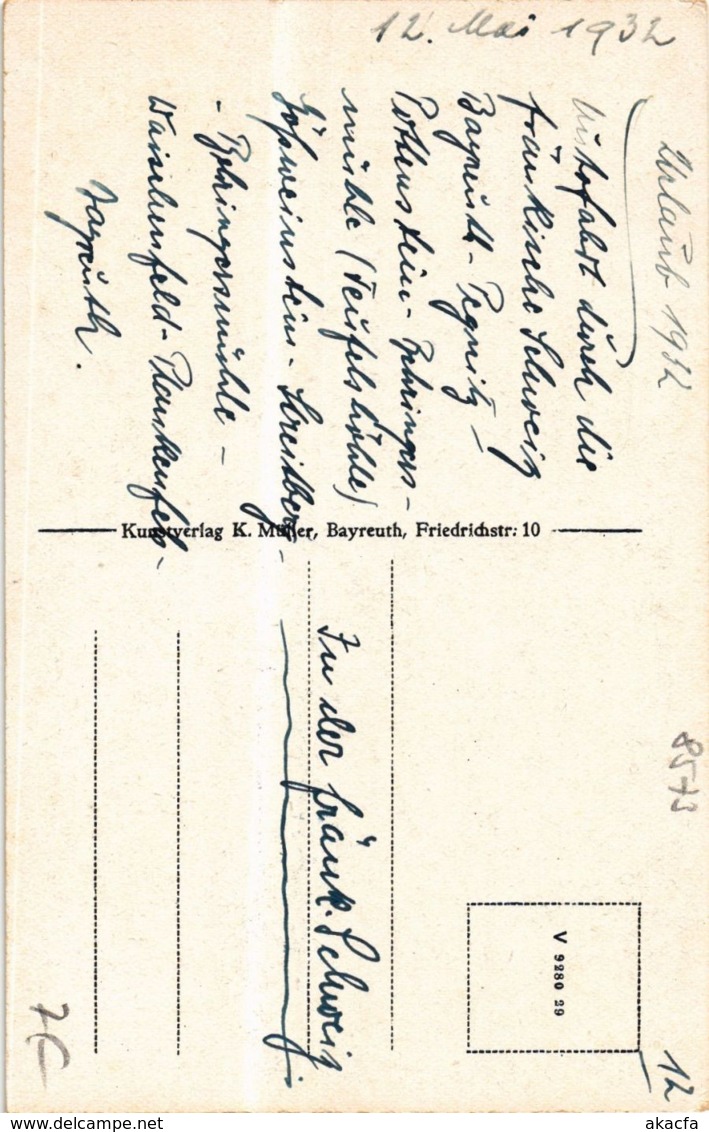 12. Mai 1932
Urlaub 1932
Autofahrt durch die
fränkische Schweiz
Bayreuth - Pegnitz -
Pottenstein - Behringers-
mühle (Teufelshöhle)
Gößweinstein - Streitberg -
- Behringersmühle -
Waischenfeld - Plankenfels -
Bayreuth.
Kunstverlag K. Müller, Bayreuth, Friedrichstr. 10
In der fränk. Schweiz
8573
V 9280 29
12
delcampe.net
akacfa